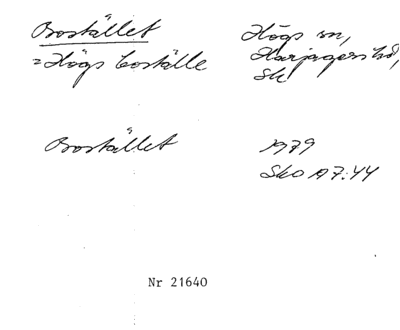 Bostället
Högs sn,
= Högs boställe
Harjagers hd,
Sk
Bostället
1979
Sko A7:44
Nr 21640